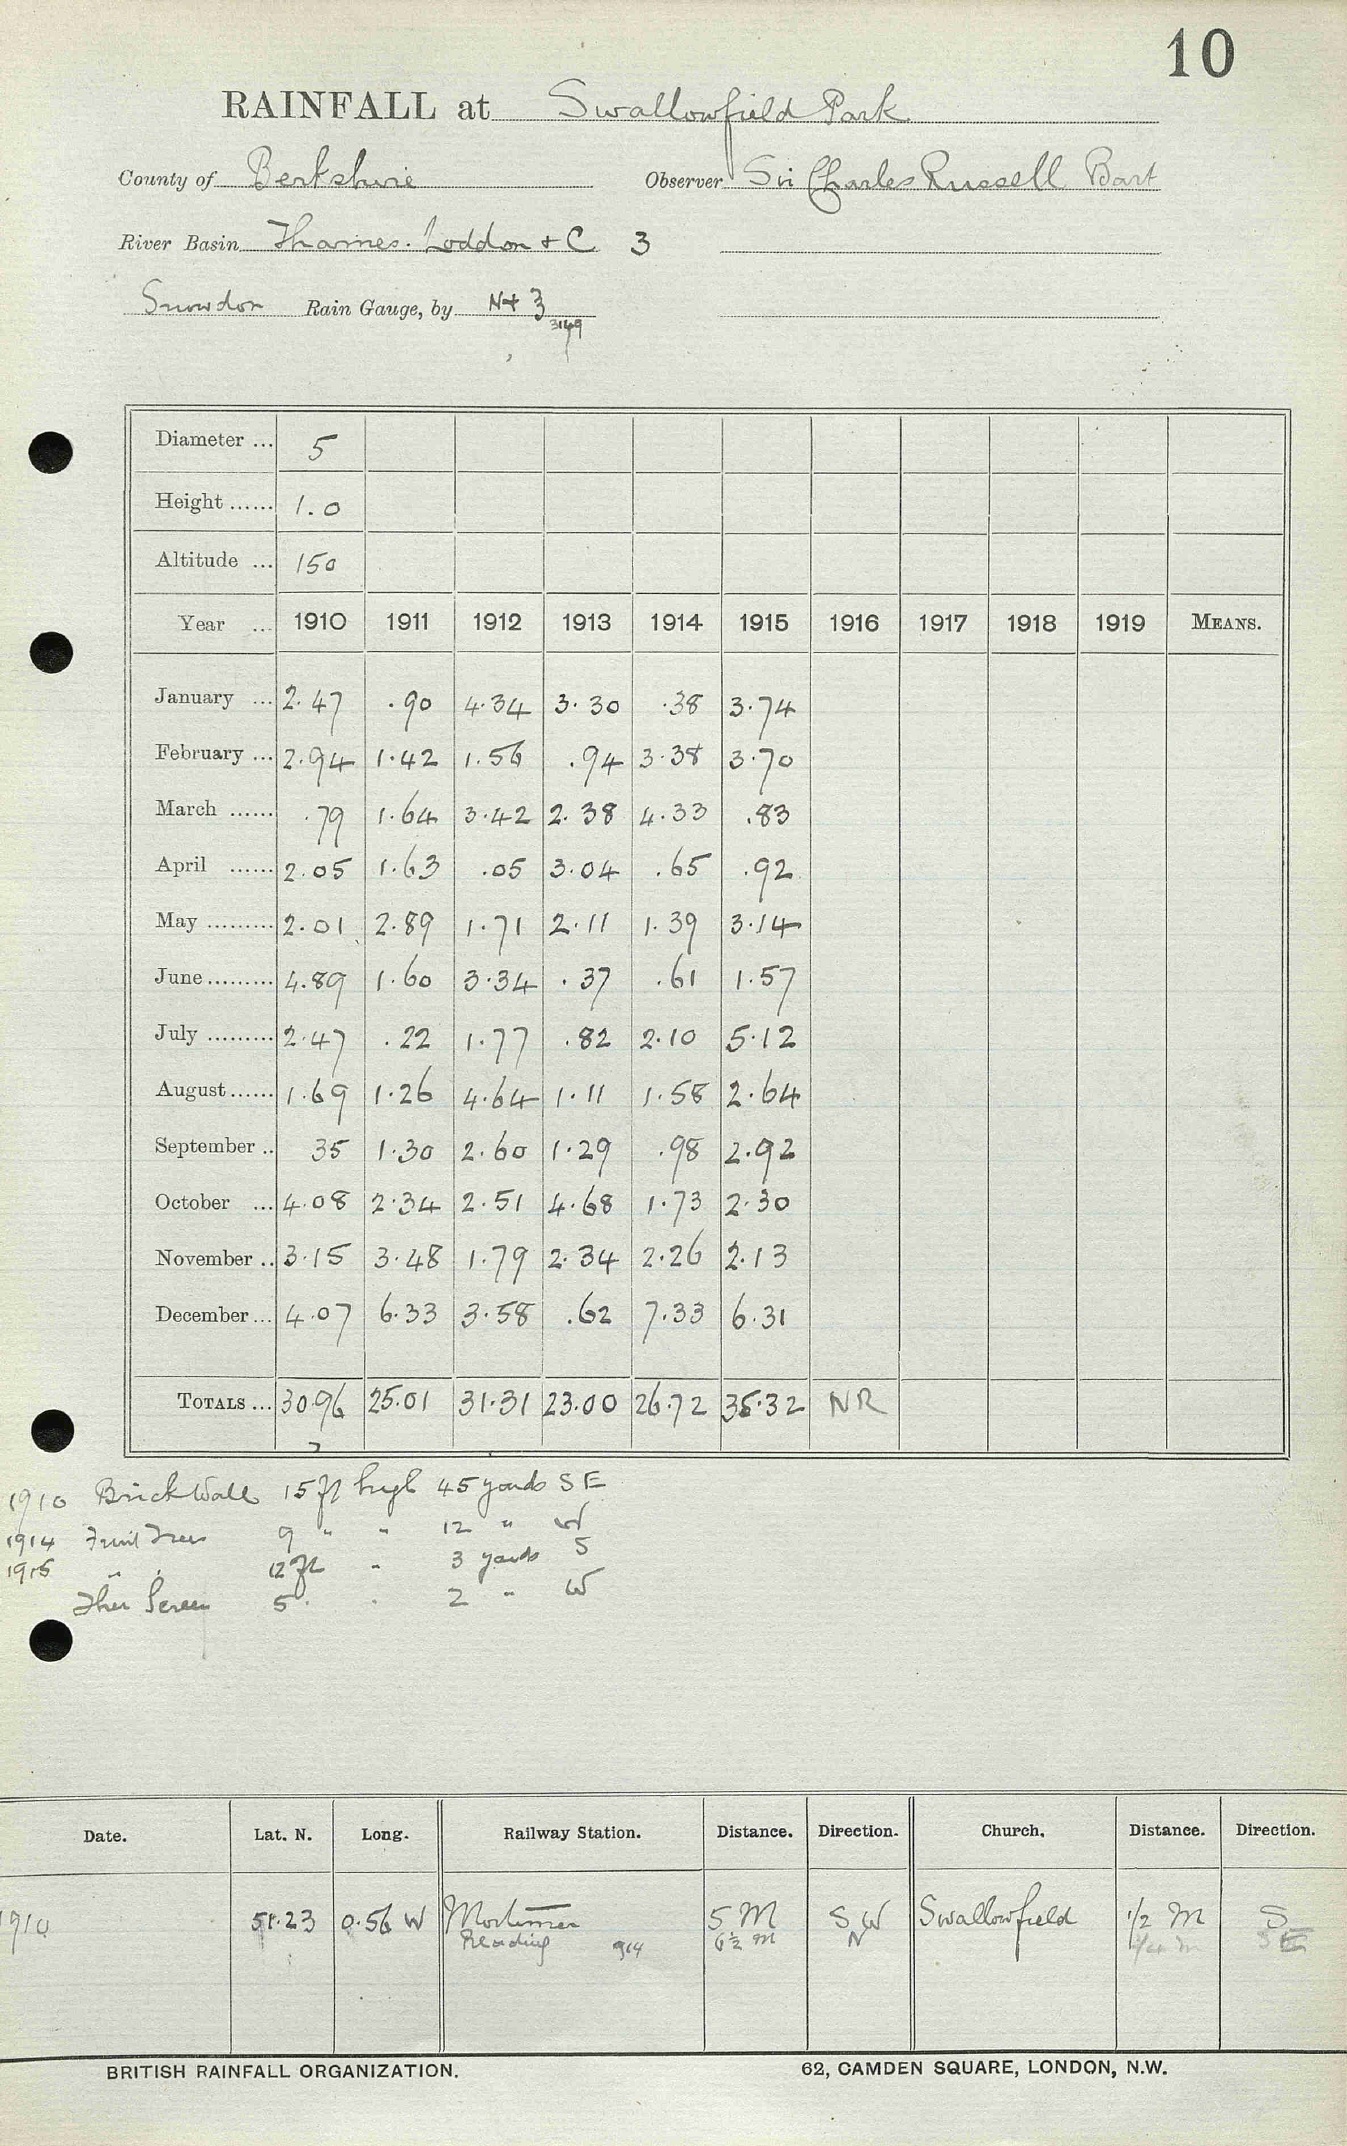 10
RAINFALL at Swallowfield Park
County of Berkshire Observer Sir Charles Russell Bart
River Basin Thames. Loddon + C 3
Snowdon Rain Gauge, by N+ Z
3149
Diameter ... 5
Height ...... 1.0
Altitude ... 150
Year ... 1910 1911 1912 1913 1914 1915 1916 1917 1918 1919 MEANS.
January ... 2.47 .90 4.34 3.30 .38 3.74
February ... 2.94 1.42 1.56 .94 3.38 3.70
March ...... .79 1.64 3.42 2.38 4.33 .83
April ...... 2.05 1.63 .05 3.04 .65 .92
May ......... 2.01 2.89 1.71 2.11 1.39 3.14
June ......... 4.89 1.60 3.34 .37 .61 1.57
July ......... 2.47 .22 1.77 .82 2.10 5.12
August ...... 1.69 1.26 4.64 1.11 1.58 2.64
September .. 35 1.30 2.60 1.29 .98 2.92
October ... 4.08 2.34 2.51 4.68 1.73 2.30
November .. 3.15 3.48 1.79 2.34 2.26 2.13
December ... 4.07 6.33 3.58 .62 7.33 6.31
TOTALS ... 30.96 25.01 31.31 23.00 26.72 35.32 NR
1910 Brick Wall 15 ft high 45 yards SE
1914 Fruit Trees 9 " " 12 " W
1915 " " 12 ft " 3 yards S
Ther Screen 5 " " 2 " W
Date. Lat. N. Long. Railway Station. Distance. Direction. Church. Distance. Direction.
1910 51.23 0.56 W Mortimer 5 M SW Swallowfield 1/2 M S
Reading 914 6½ m N SE
BRITISH RAINFALL ORGANIZATION. 62, CAMDEN SQUARE, LONDON, N.W.